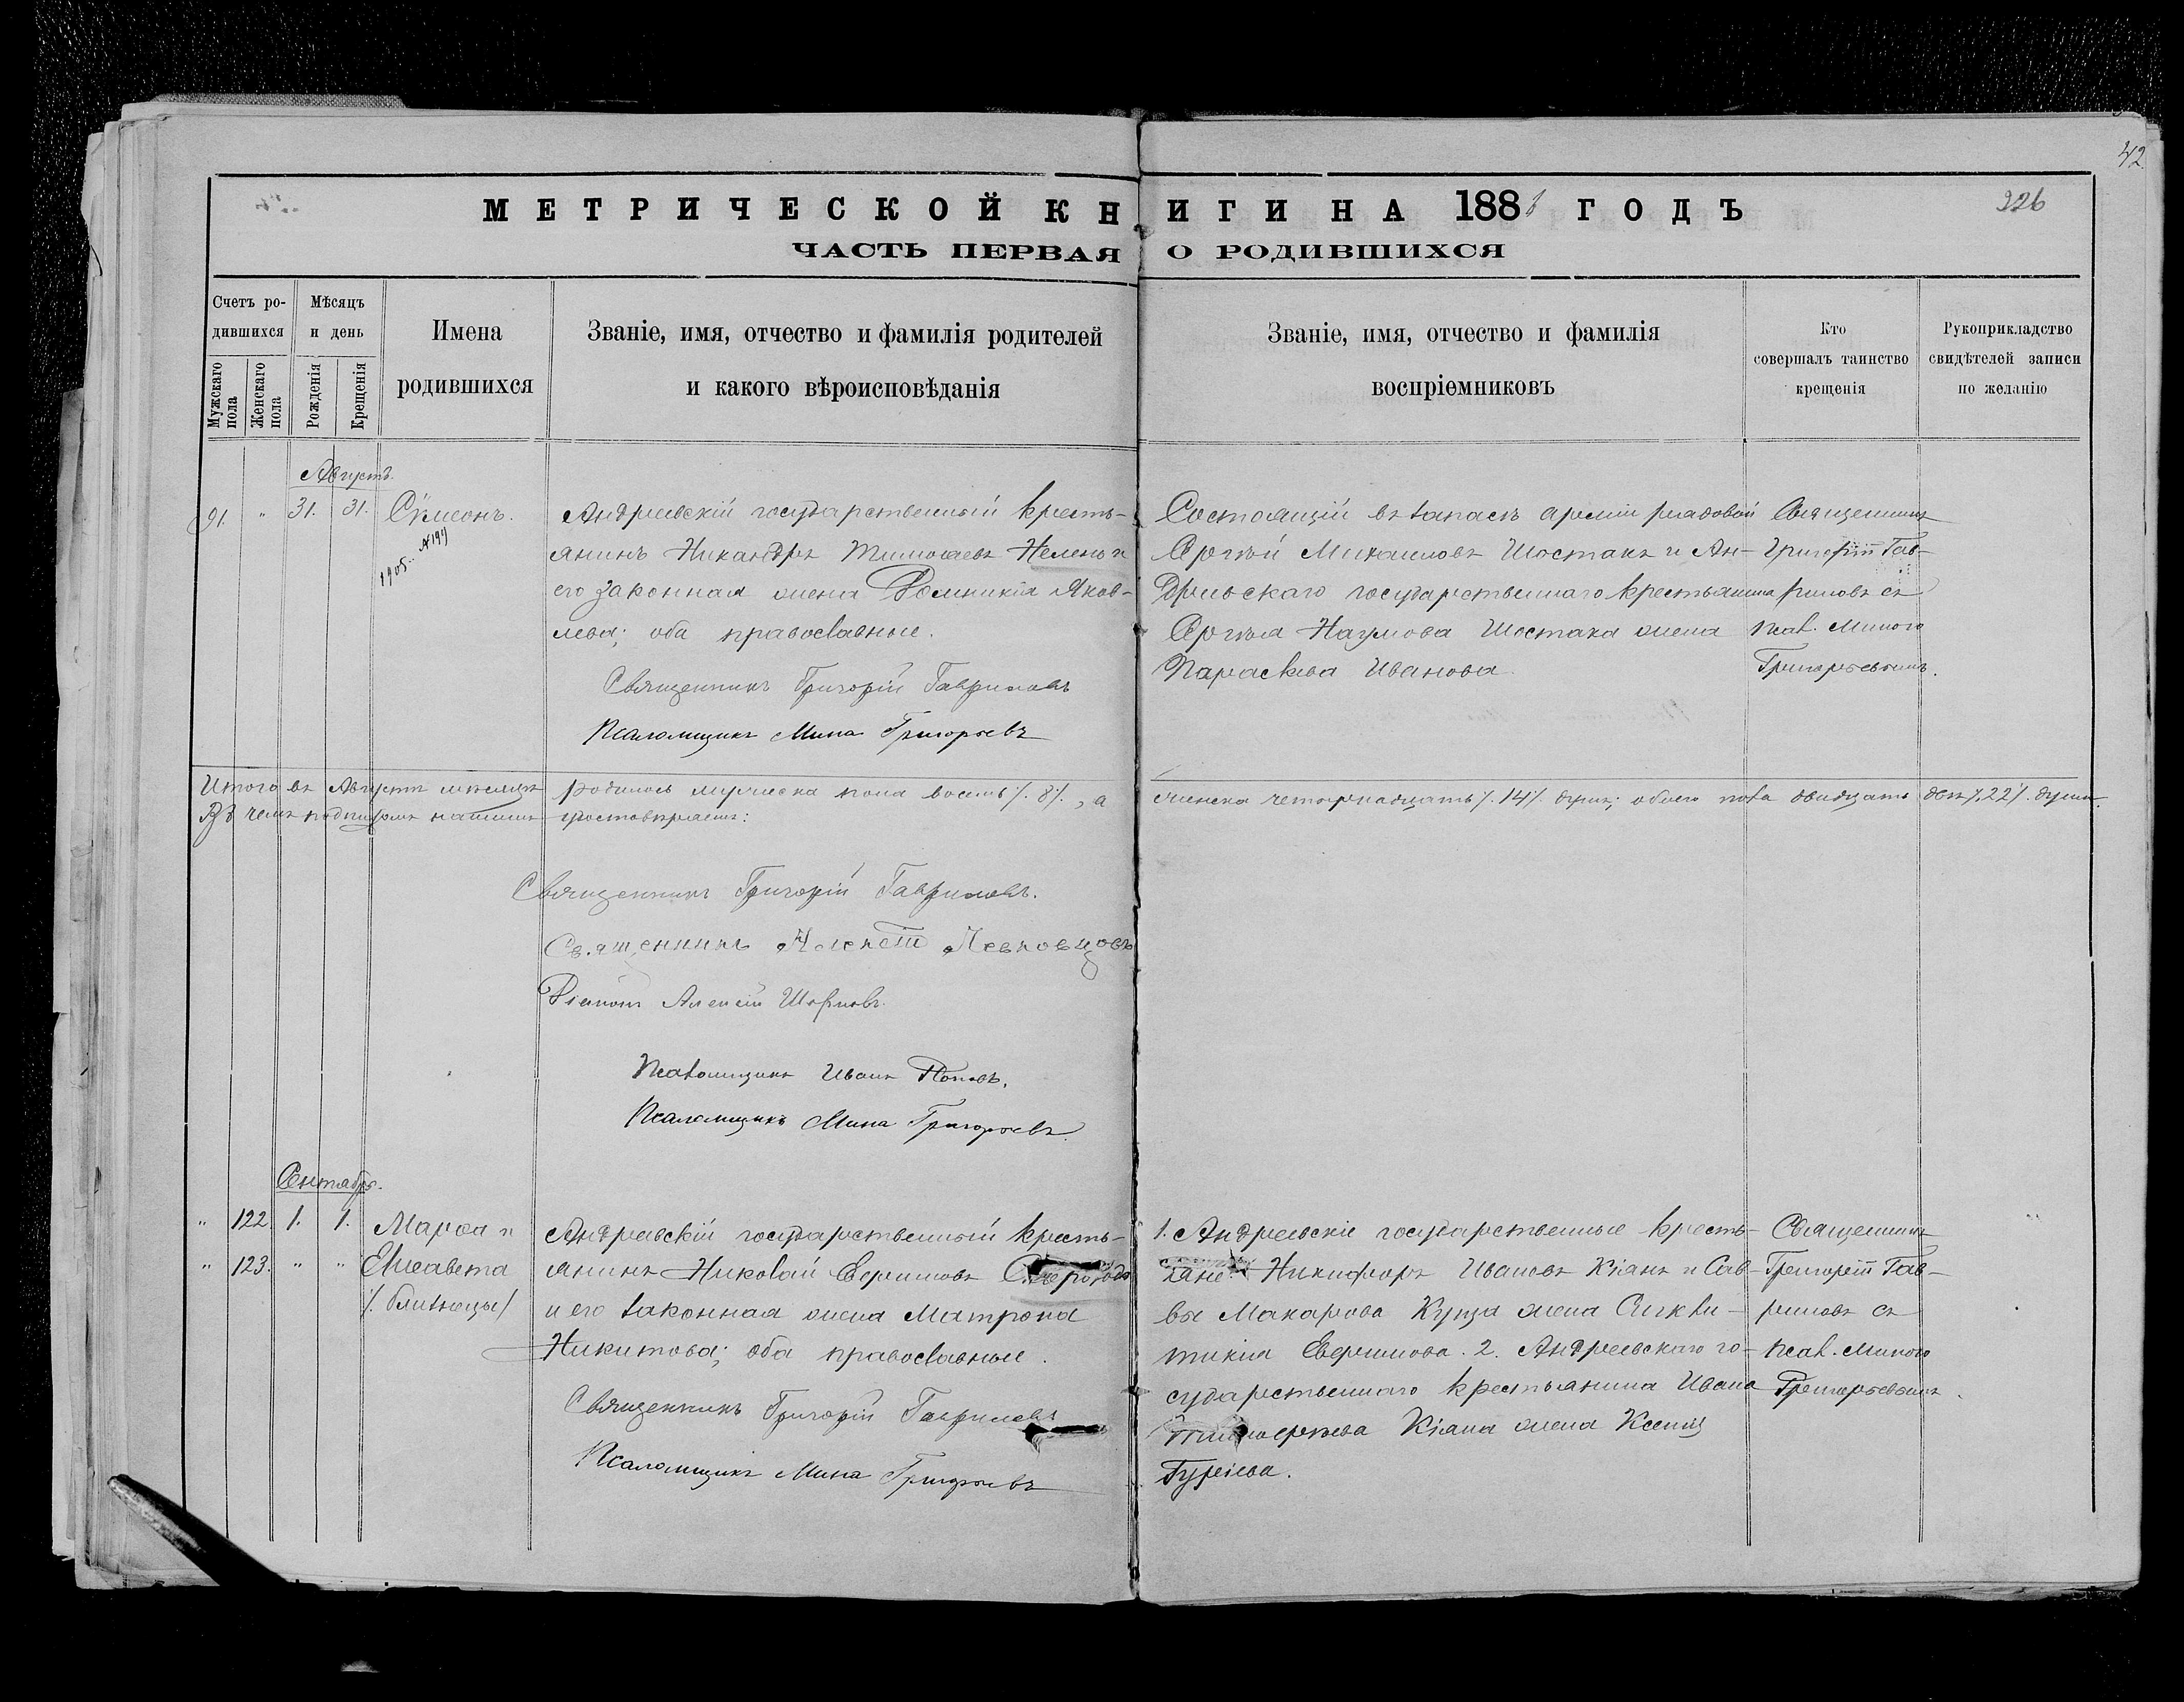 42
226
МЕТРИЧЕСКОЙ КНИГИ НА 188 ГОДЪ
ЧАСТЬ ПЕРВАЯ О РОДИВШИХСЯ
Счетъ ро-
дившихся
Мужскаго пола
Женскаго пола
Мѣсяцъ
и день
Рожденія
Крещенія
Имена
родившихся
Званіе, имя, отчество и фамилія родителей
и какого вѣроисповѣданія
Званіе, имя, отчество и фамилія
воспріемниковъ
Кто
совершалъ таинство
крещенія
Рукоприкладство
свидѣтелей записи
по желанію
Августъ.
91. " 31. 31. Сѷмеонъ.
1905
Андреевскій государственный кресть-
янинъ Никандръ Тимоѳеевъ и
его законная жена Домникія Яков-
лева; оба православные.
Священникъ Григорій Гавриловъ
Псаломщикъ Мина Григорьевъ
Состоящій въ запасѣ арміи рядовой
Сергѣй Михаиловъ Шостакъ и Ан-
дреевскаго государственнаго крестьянина
Сергѣя Наумова Шостака жена
Параскева Иванова.
Священникъ
Григорій Гав-
риловъ съ
псал. Миною
Григорьевымъ.
Итого въ Августѣ мѣсяцѣ родилось мужеска пола восемь /.8/., а женска четырнадцать /.14/. душъ; обоего пола двадцать двѣ /.22/. души.
Въ чемъ подписомъ нашимъ удостовѣряемъ:
Священникъ Григорій Гавриловъ.
Священникъ Алексій Левковцовъ
Діаконъ Алексій
Псаломщикъ Иванъ Поповъ.
Псаломщикъ Мина Григорьевъ.
Сентябрь.
" 122. 1. 1. Марѳа и
" 123. " " Елисавета
/. близнецы /
Андреевскій государственный кресть-
янинъ Николай Ефимовъ
и его законная жена Матрона
Никитова; оба православные.
Священникъ Григорій Гавриловъ
Псаломщикъ Мина Григорьевъ
1. Андреевскіе государственные кресть-
яне: Никифоръ Ивановъ Кіянъ и Сав-
вы Макарова Купца жена Сѷнкли-
тикія Ефимова. 2. Андреевскаго го-
сударственнаго крестьянина Ивана
Тимоѳеева Кіяна жена Ксенія
Гуріева.
Священникъ
Григорій Гав-
риловъ съ
псал. Миною
Григорьевымъ.